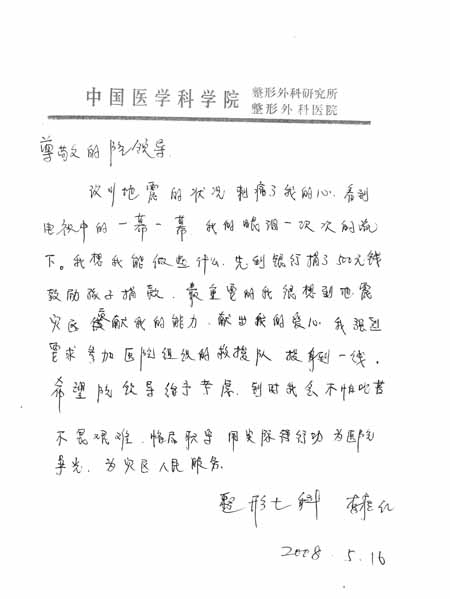 中国医学科学院 整形外科研究所
整形外科医院
尊敬的院领导
汶川地震的状况刺痛了我的心,看到
电视中的一幕一幕 我的眼泪一次次的流
下。我想我能做些什么,先到银行捐了500元钱
鼓励孩子捐款,最重要的我很想到地震
灾区贡献我的能力,献出我的爱心,我强烈
要求参加医院组织的救援队 投身到一线。
希望院领导给予考虑,到时我会不怕吃苦
不畏艰难,恪尽职守 用实际行动 为医院
争光,为灾区人民服务。
整形七科
2008.5.16